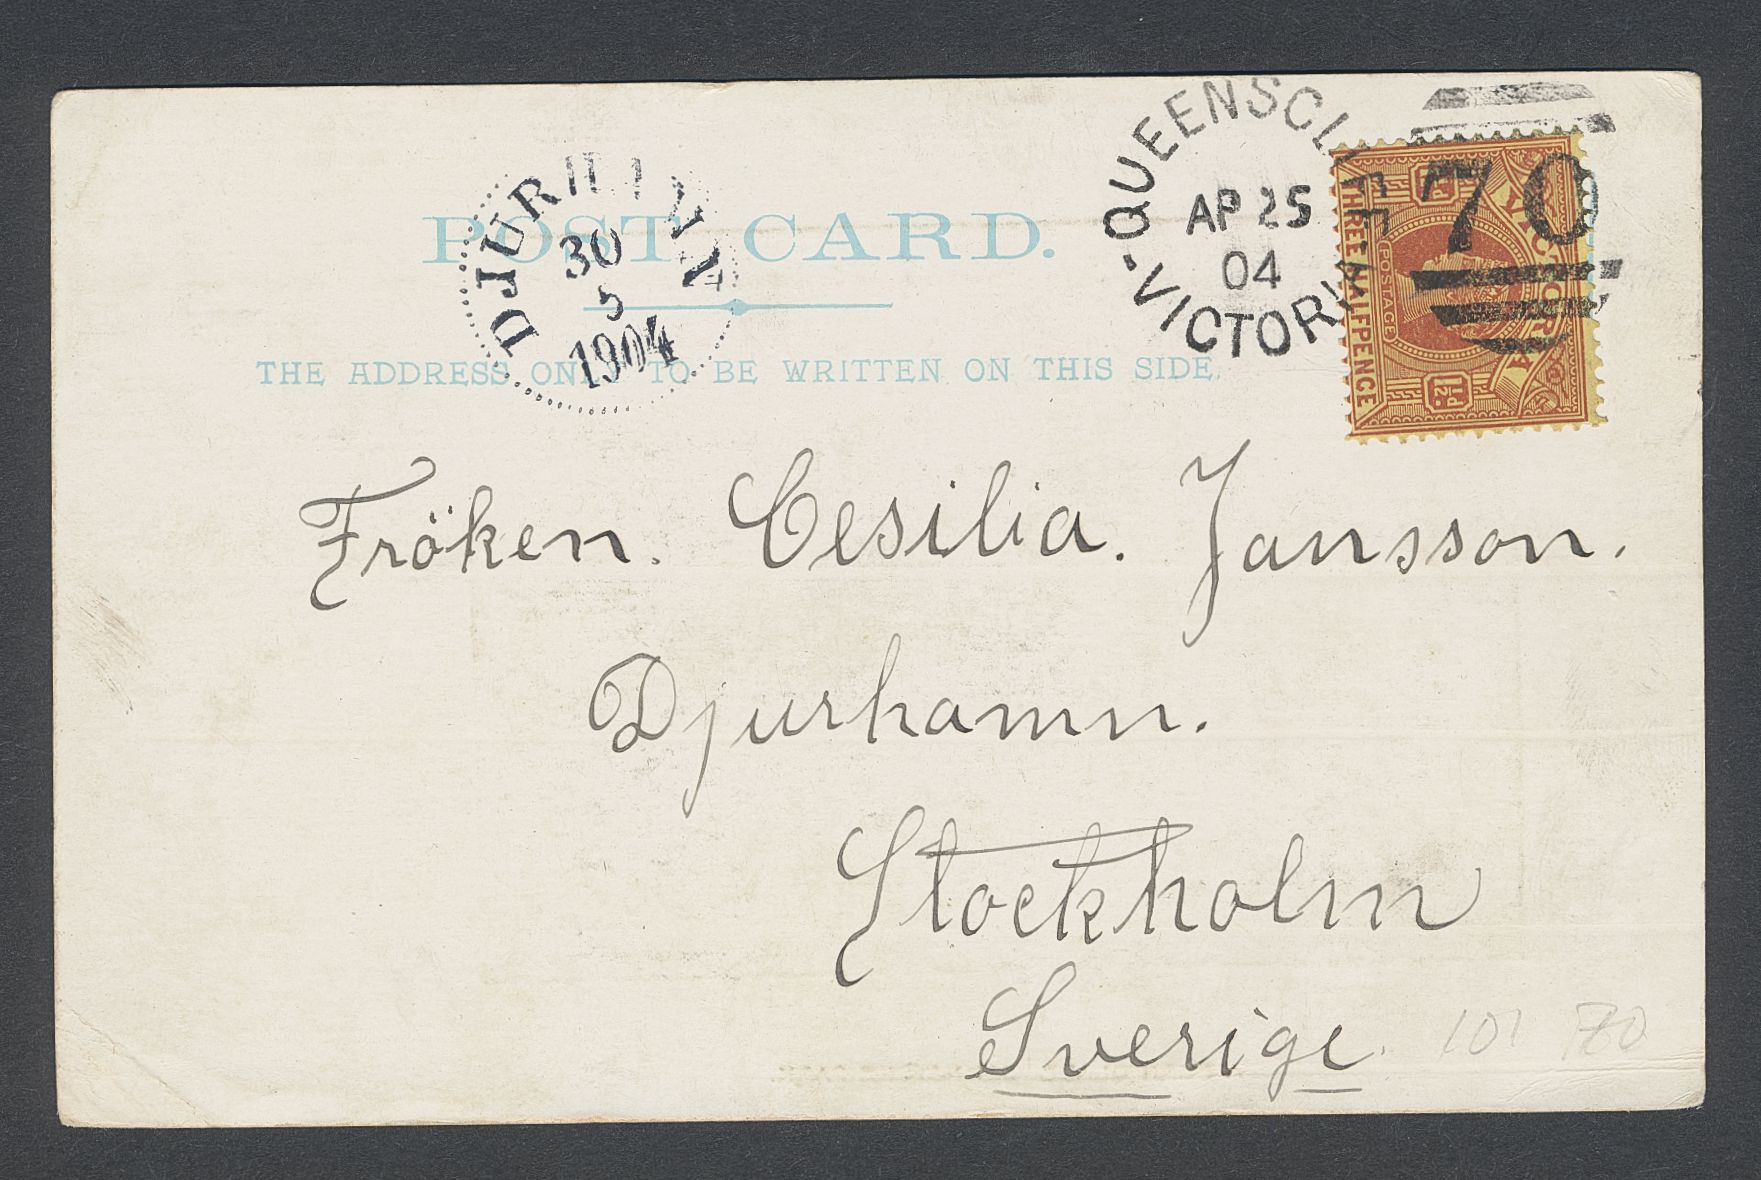 QUEENSCLIFF
AP 25
04
VICTORIA
70
VICTORIA
POSTAGE
THREE HALFPENCE
1½d
30
5
1904
POST CARD.
THE ADDRESS ONLY TO BE WRITTEN ON THIS SIDE.
Fröken. Cesilia. Jansson.
Djurhamn.
Stockholm
Sverige.
101 70